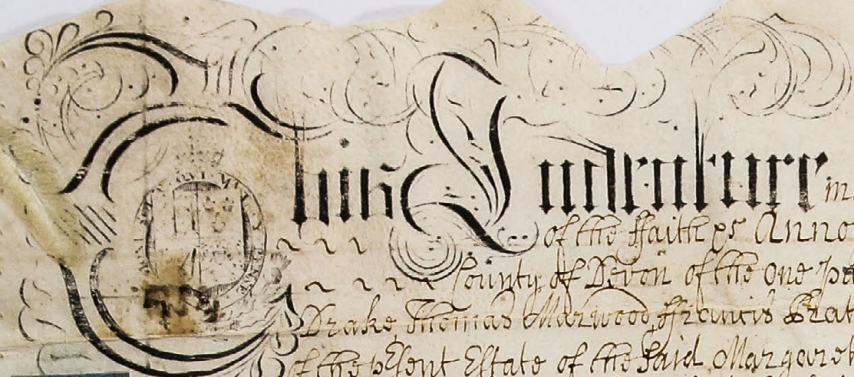 This Indenture m
of the ffaith &c Anno
County of Devon of the one pa
Drake Thomas Marwood ffrancis
of the pesent Estate of the said Margaret